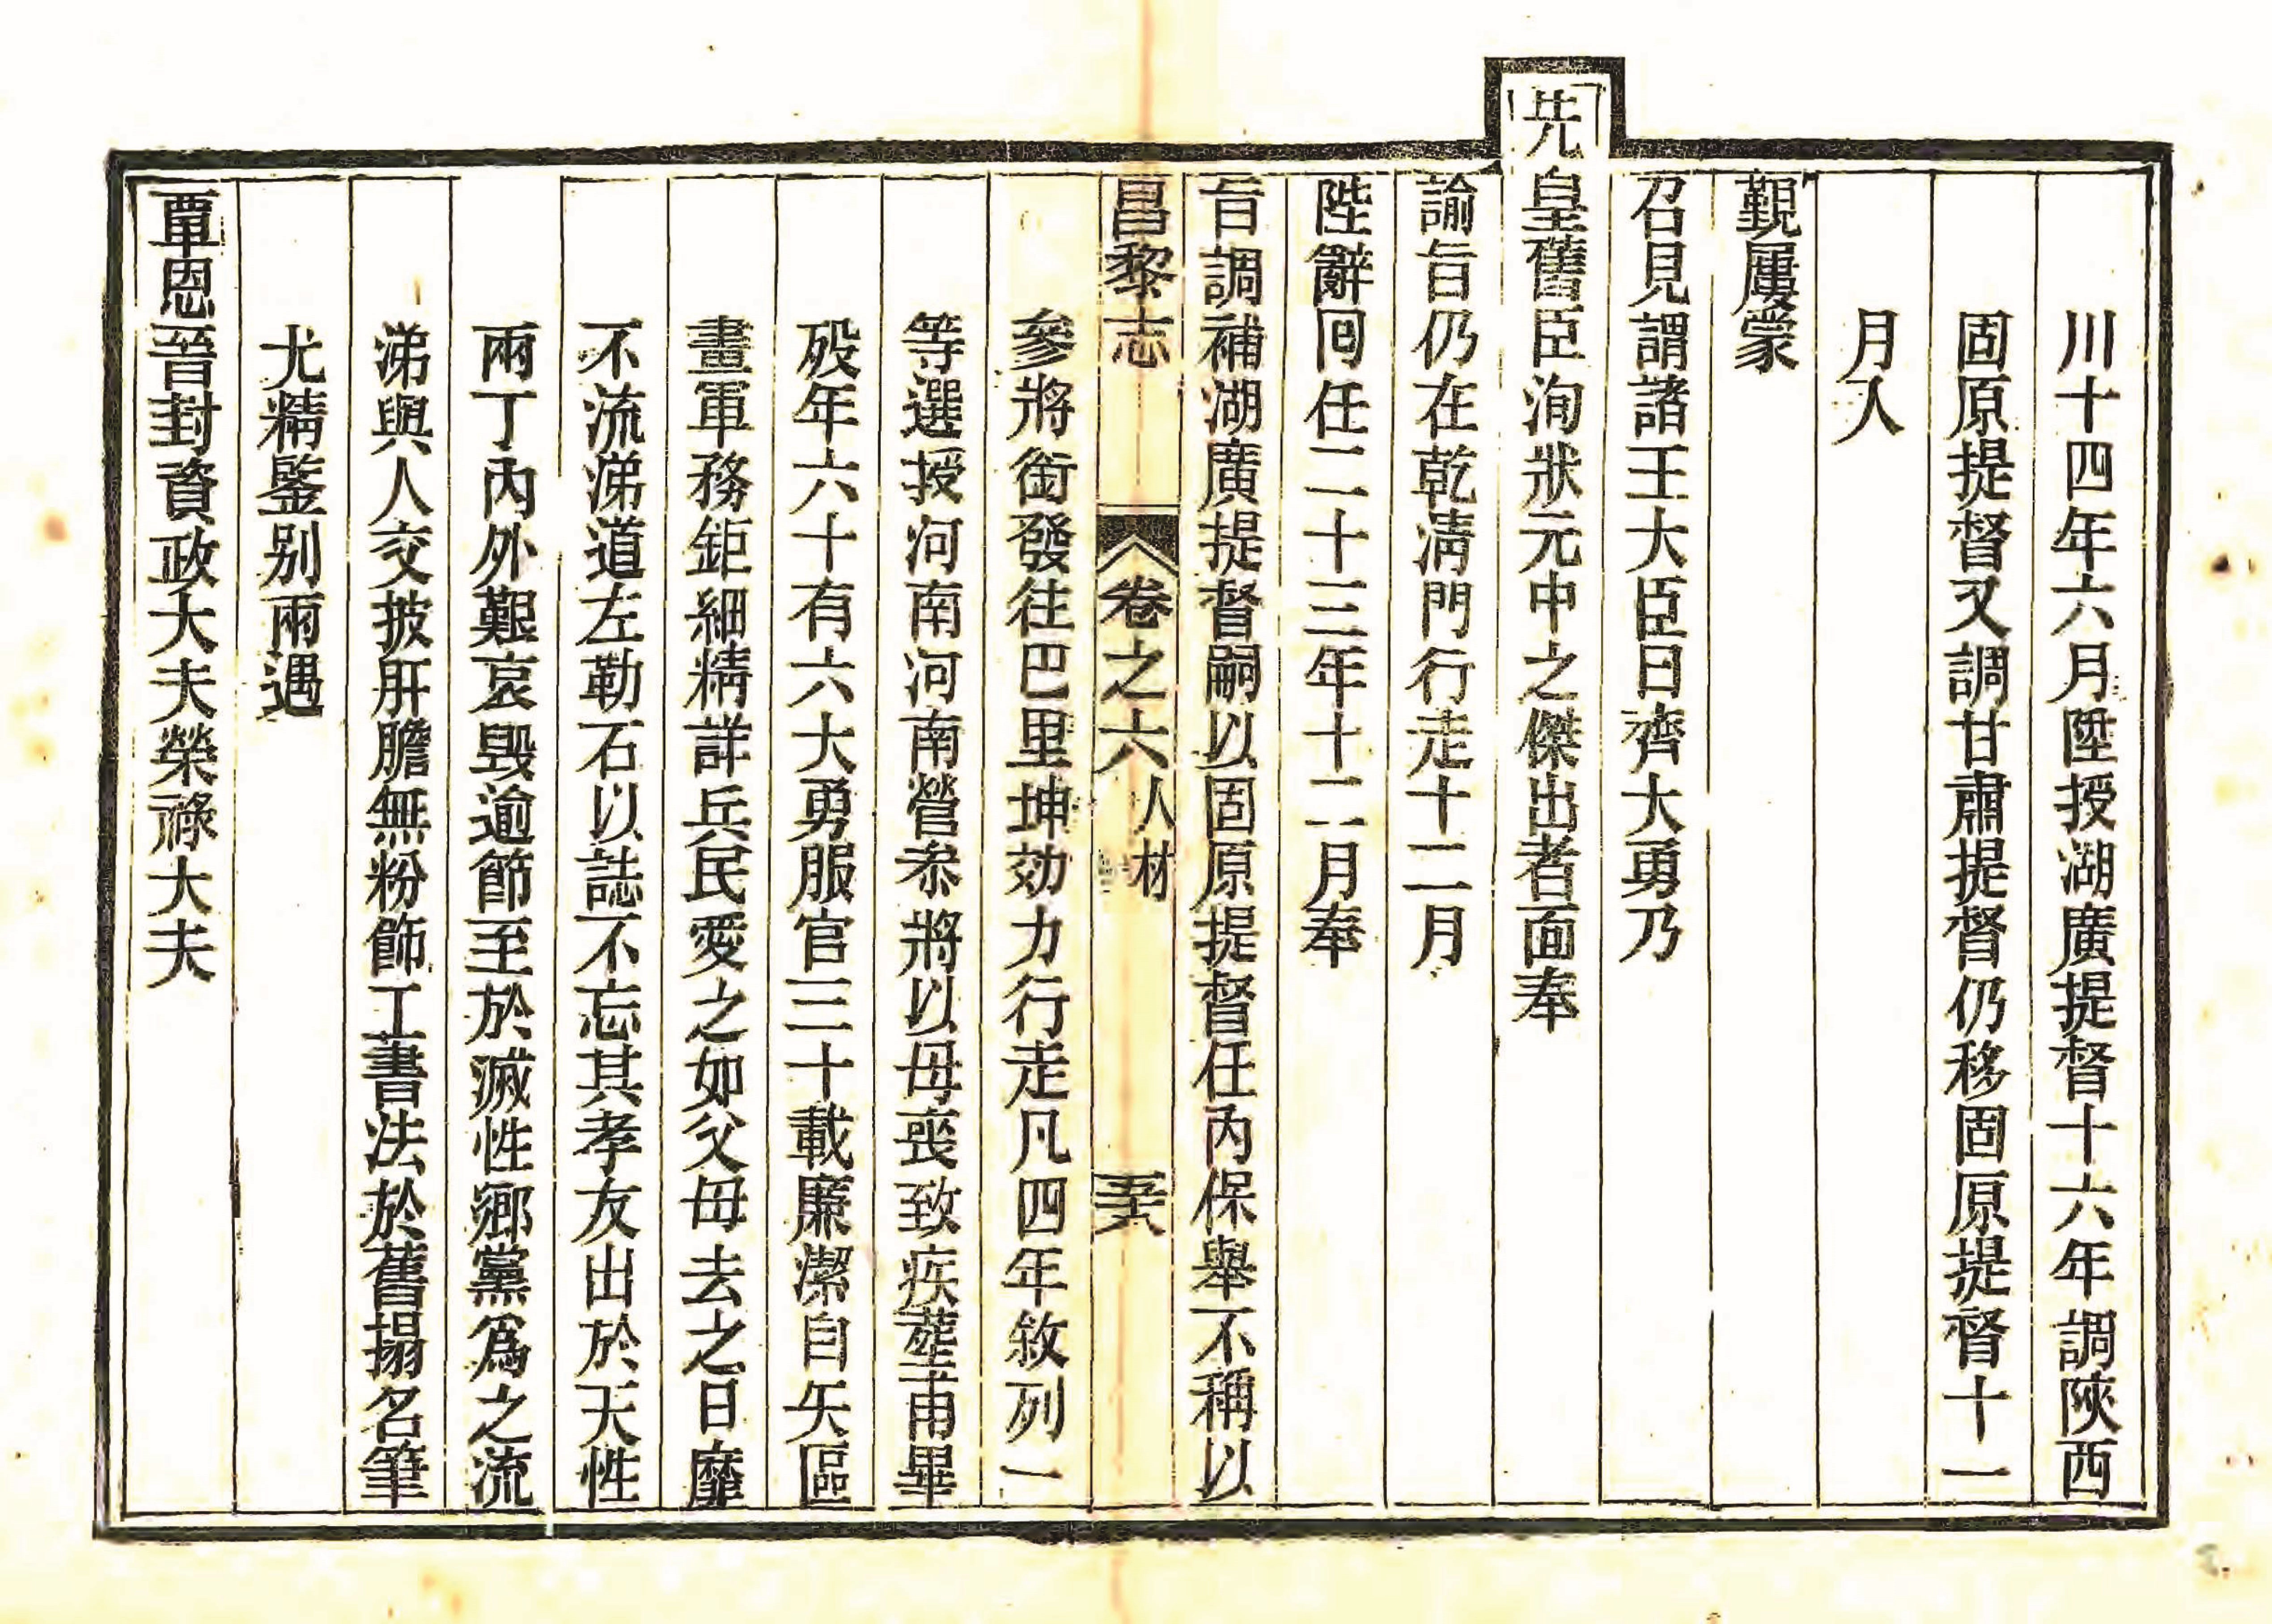 川十四年六月陞授湖廣提督十六年調陝西
固原提督又調甘肅提督仍移固原提督十一
月入
覲屢蒙
召見謂諸王大臣曰齊大勇乃
先皇舊臣洵狀元中之傑出者面奉
諭旨仍在乾清門行走十二月
陛辭囘任二十三年十二月奉
旨調補湖廣提督嗣以固原提督任內保舉不稱以
昌黎志 卷之六 人材 五六
參將銜發往巴里坤効力行走凡四年敘列一
等選授河南河南營叅將以毋喪致疾塟甫畢
歿年六十有六大勇服官三十載廉潔自矢區
畫軍務鉅細精詳兵民愛之如父毋去之日靡
不流涕道左勒石以誌不忘其孝友出於天性
兩丁內外艱哀毀逾節至於滅性鄉黨爲之流
涕與人交披肝膽無粉飾工書法於舊搨名筆
尤精鑒别兩遇
覃恩晉封資政大夫榮祿大夫